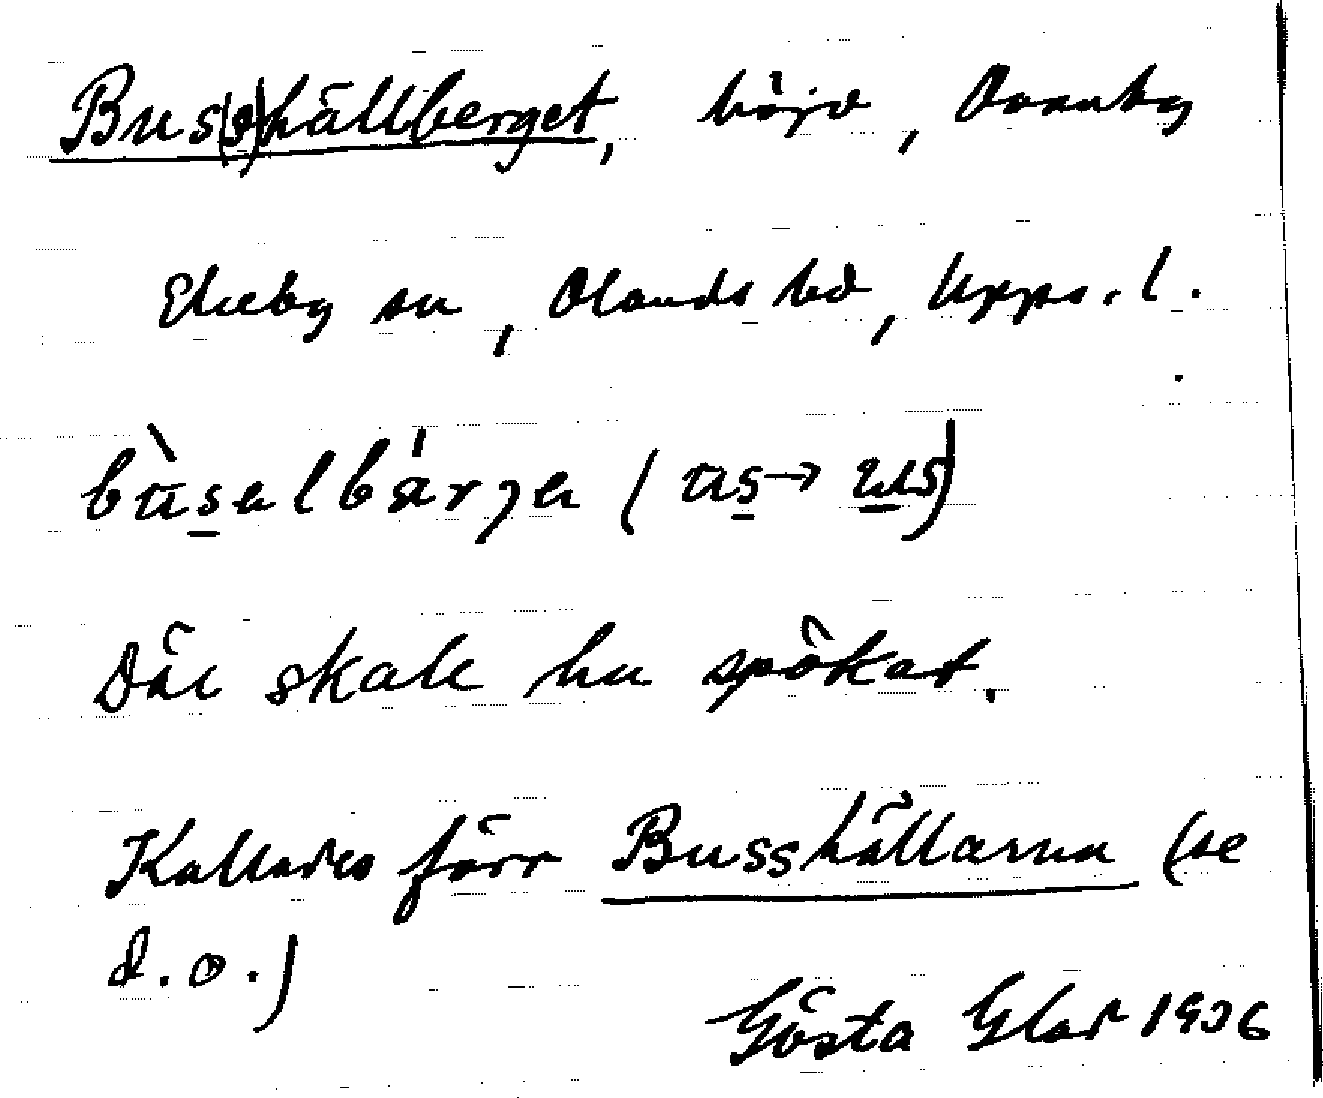 Bus(s)hällberget, höjd, Dannby
Ekeby sn, Olands hd, Upps. l.
bùsalbár̨ɟa (us→ us)
Där skall ha spökat.
Kallades förr Busshällarna (se
d.o.)
Gösta Glad 1936